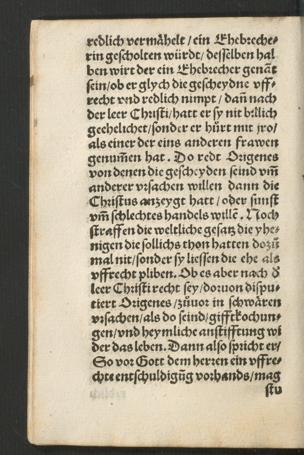 redlich vermähelt / ein Ehebreche-
rin gescholten würdt / desselben hal
ben wirt der ein Ehebrecher genāt
sein / ob er glych die gescheydne vff-
recht vnd redlich nimpt / dañ nach
der leer Christi / hatt er sy nit billich
geehelichet / sonder er hürt mit jro /
als einer der eins anderen frawen
genum̄en hat. Do redt Origenes
von denen die gescheyden seind vm̄
anderer vrsachen willen dann die
Christus anzeygt hatt / oder sunst
vm̄ schlechtes handels willē. Noch
straffen die weltliche gesatz die yhe-
nigen die sollichs thon hatten dozů
mal nit / sonder sy liessen die ehe als
vffrecht pliben. Ob es aber nach d'
leer Christi recht sey / doruon dispu-
tiert Origenes / zůuor in schwären
vrsachen / als do seind / gifftkochun-
gen / vnd heymliche anstifftung wi
der das leben. Dann also spricht er /
So vor Gott dem herren ein vffre-
chte entschuldigūg vorhands / mag
stu